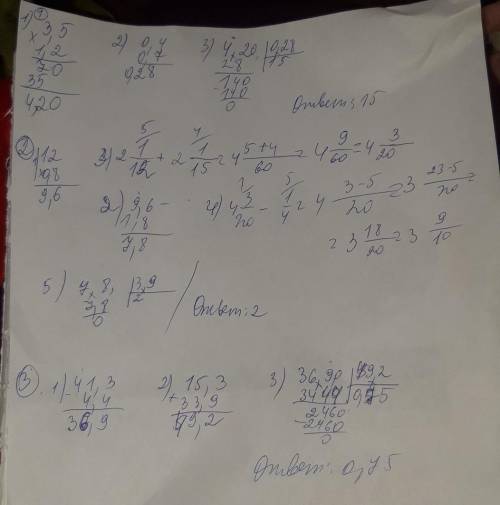 ①
1) × 3,5
1,2
70
35
4,20
2) 0,4
0,7
0,28
3) 4,20 | 0,28
28 | 15
140
140
0
Ответ: 15
②
12
0,8
9,6
3) 2 1/12 + 2 1/15 = 4 5+4/60 = 4 9/60 = 4 3/20
2) 9,6 -
1,8
7,8
4) 4 3/20 - 1/4 = 4 3-5/20 = 3 23-5/20 =
= 3 18/20 = 3 9/10
5) 7,8, | 3,9
7,8 | 2
0
Ответ: 2
③
1) - 41,3
4,4
36,9
2) 15,3
+ 33,9
49,2
3) 36,90 | 49,2
3444 | 0,75
2460
- 2460
0
Ответ: 0,75